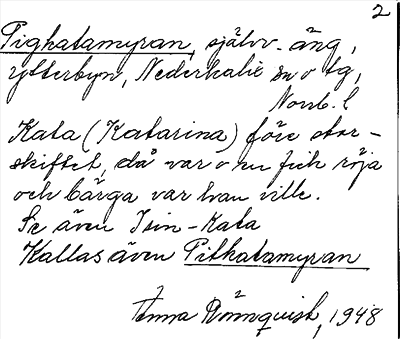 2
Pigkatamyran, självv. äng,
rytterbyn, Nederkalix sn o tg,
Norrb. l
Kata (Katarina) före stor-
skiftet, då var o en fick röja
och bärga var han ville.
Se även Isin-Kata
Kallas även Pitkatamyran
Anna Rönnquist, 1948